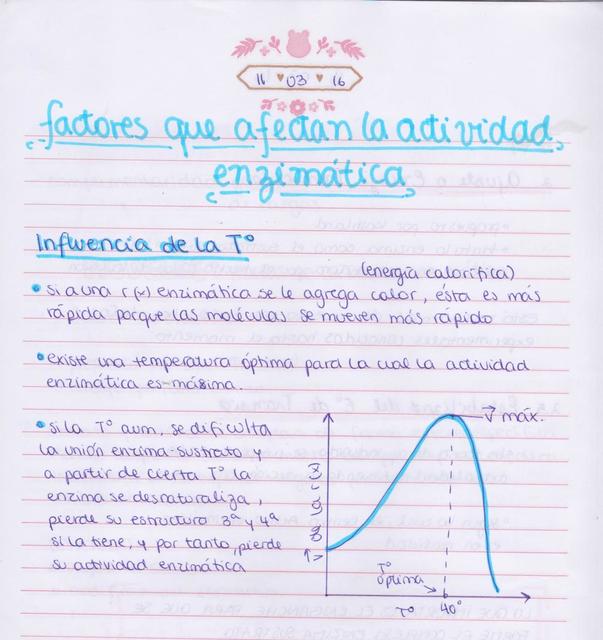 11 ♥ 03 ♥ 16
factores que afectan la actividad
enzimática
Influencia de la Tº
(energía calorífica)
• si a una r(x) enzimática se le agrega calor, ésta es más
rápida porque las moléculas se mueven más rápido
• existe una temperatura óptima para la cual la actividad
enzimática es máxima.
• si la Tº aum, se dificulta
la unión enzima-sustrato y
a partir de cierta Tº la
enzima se desnaturaliza,
pierde su estructura 3ª y 4ª
si la tiene, y por tanto, pierde
su actividad enzimática
V máx.
Tº
óptima
Tº
40º